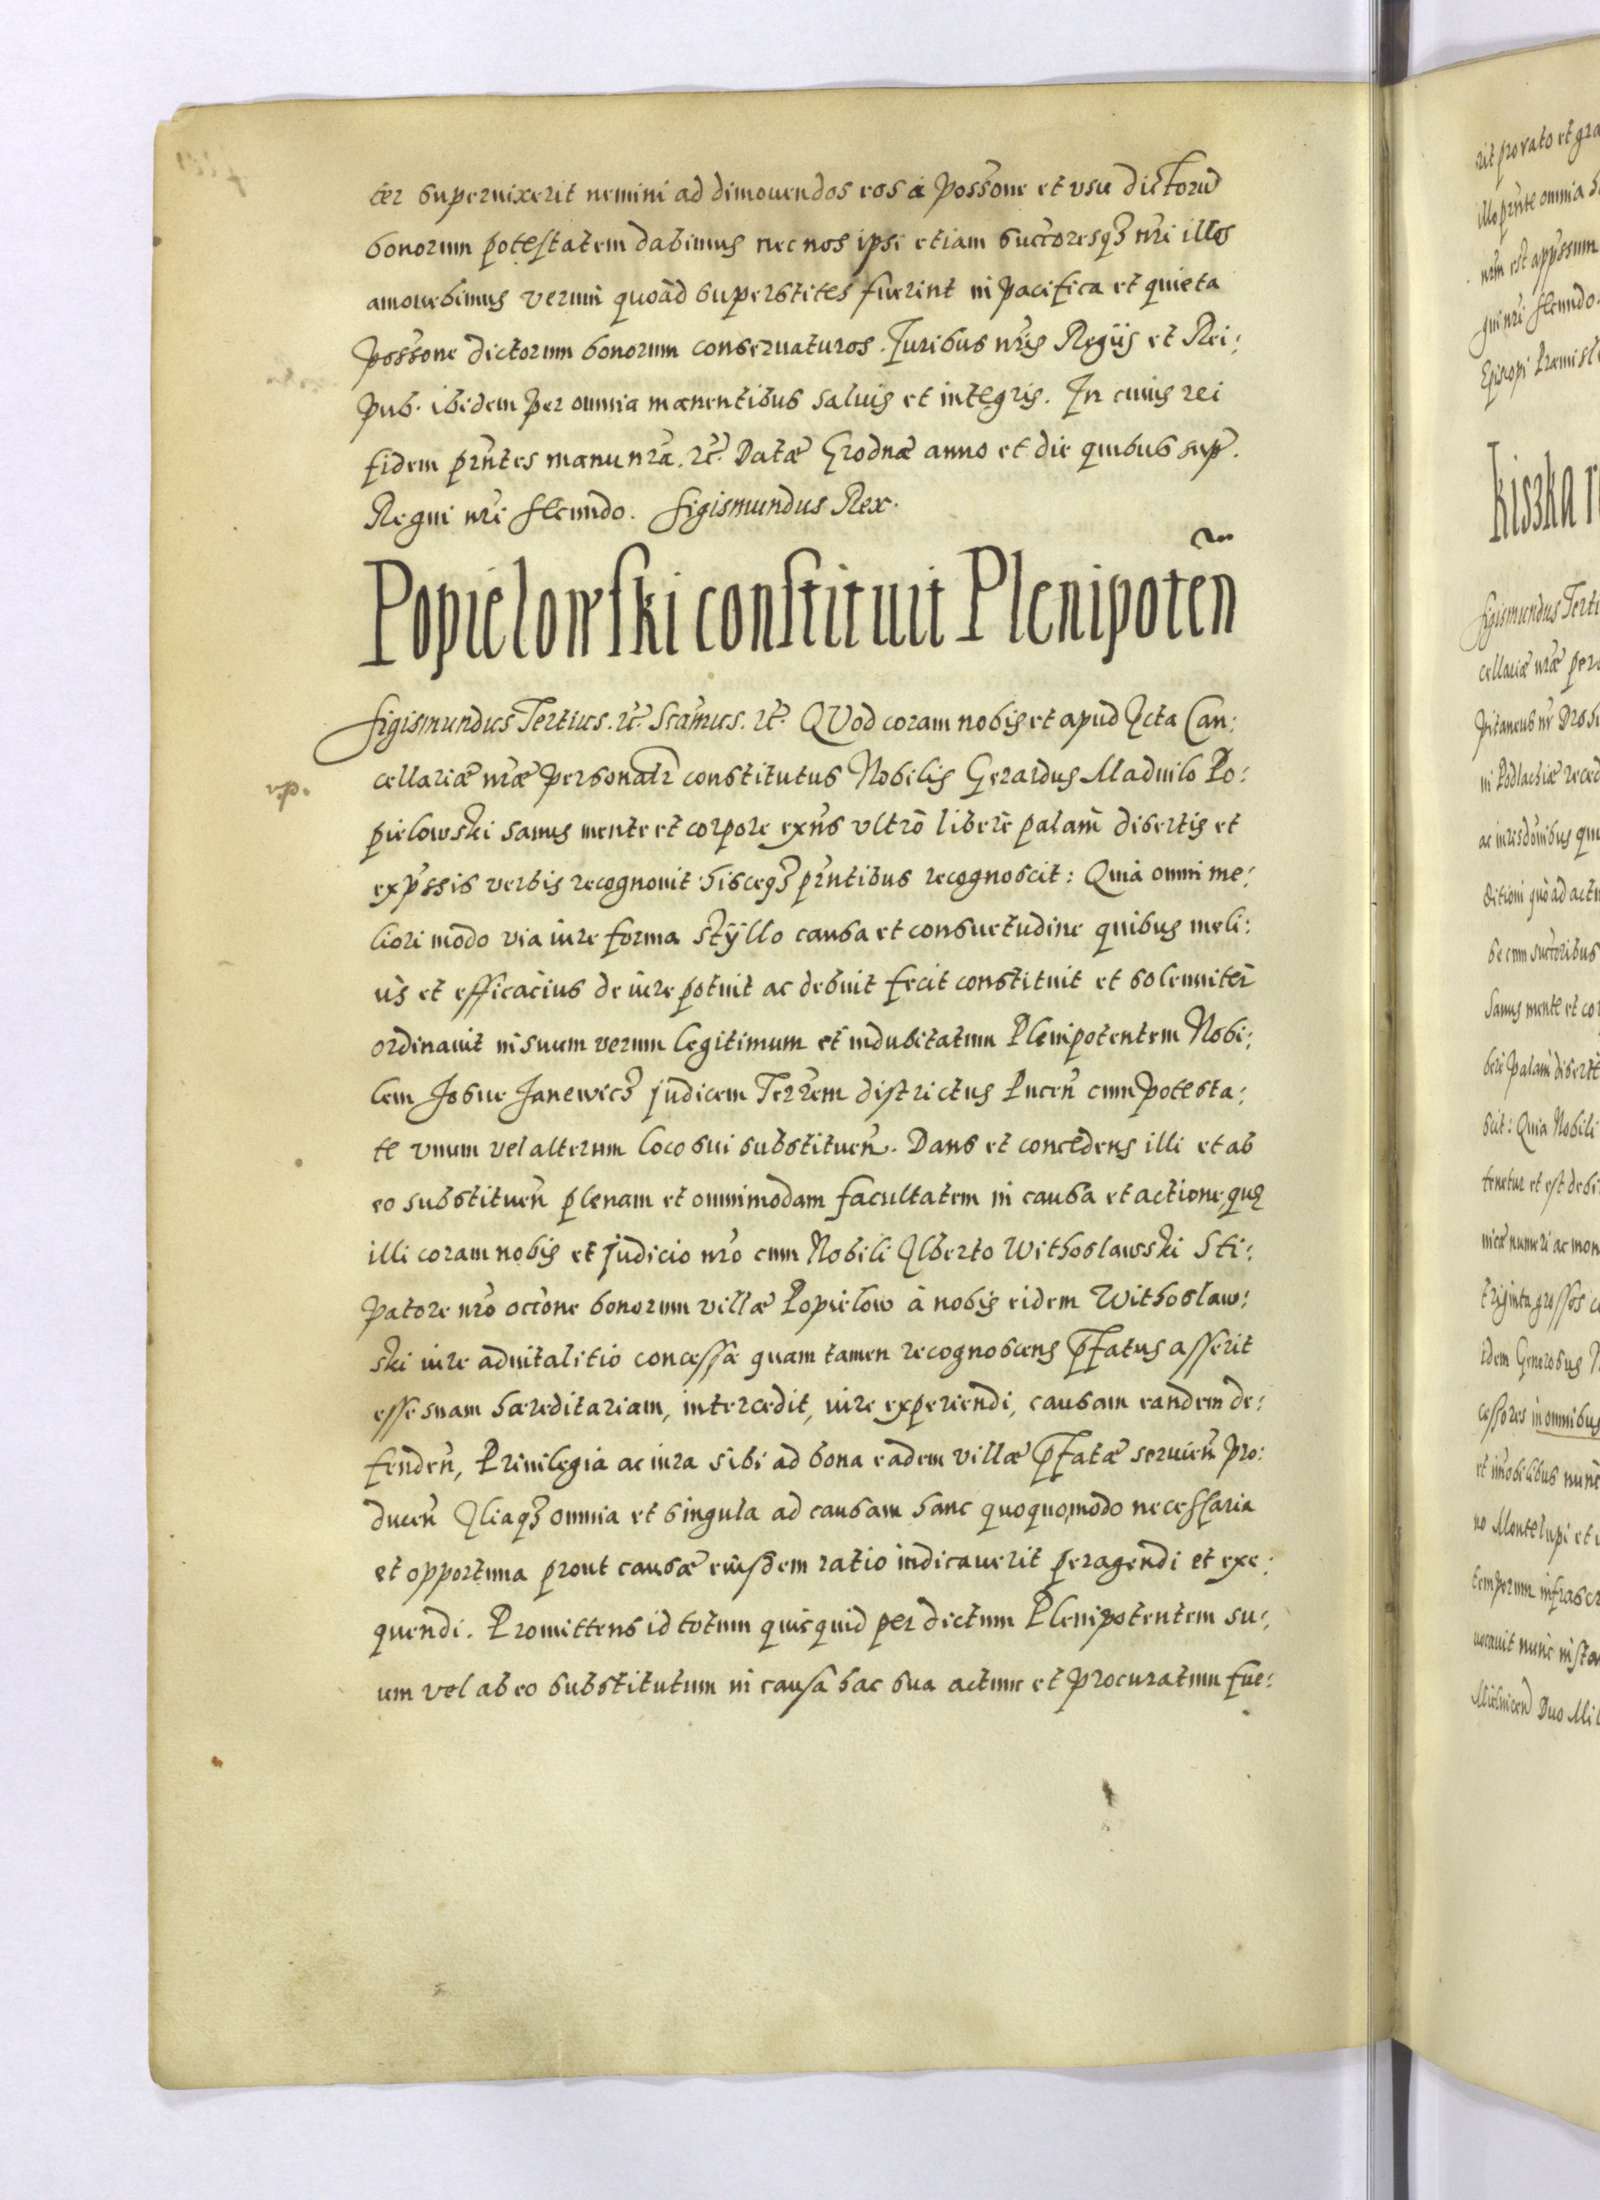 ter supervixerit nemini ad dimovendos eos à possone et vsu dictorū
bonorum potestatem dabimus nec nos ipsi etiam succoresqȝ nrī illos
amovebimus verum quoad superstites fuerint in pacifica et quieta
possone dictorum bonorum conservaturos. Iuribus nrīs Regijs et Rei:
pub. ibidem per omnia manentibus salvis et integris. In cuius rei
fidem prn̄tes manu nrā. rc̄. Datæ Grodnæ anno et die quibus sup̄.
Regni nrī secundo. Sigismundus Rex.
Popielowski constituit Plenipoteñ
Sigismundus Tertius. rc̄. Scam̄us. rc̄. QVod coram nobis et apud Acta Can:
v.p.
cellariæ nrǣ personalr̄ constitutus Nobilis Gerardus Madvilo Po:
pielowski sanus mente et corpore exn̄s vltrò liberè palàm disertis et
exp̄ssis verbis recognovit hisceqȝ prn̄tibus recognoscit: Quia omni me:
liori modo via iure forma stÿllo causa et consuetudine quibus meli:
ùs et efficaciùs de iure potuit ac debuit fecit constituit et solenniter
ordinavit in suum verum legitimum et indubitatum Plenipotentem Nobi:
lem Josue Janewicȝ judicem Terrem districtus Lucen̄ cum potesta:
te vnum vel alterum loco sui substituen̄. Dans et concedens illi et ab
eo substituen̄ plenam et omnimodam facultatem in causa et actione, quę
illi coram nobis et judicio nrō cum Nobili Alberto Withoslawski Sti:
patore nrō occōne bonorum villæ Popielow à nobis eidem Withoslaw:
ski iure advitalitio concessæ quam tamen recognoscens p̄fatus asserit
esse suam hæreditariam, intercedit, iure experiendi, causam eandem de:
fenden̄, Privilegia ac iura sibi ad bona eadem villæ p̄fatæ servien̄ pro:
ducen̄ Aliaqȝ omnia et singula ad causam hanc quoquomodo necessaria
et opportuna prout causæ eiusdem ratio indicaverit peragendi et exe:
quendi. Promittens id totum quicquid per dictum Plenipotentem su:
um vel ab eo substitutum in causa hac sua actum et procuratum fue: